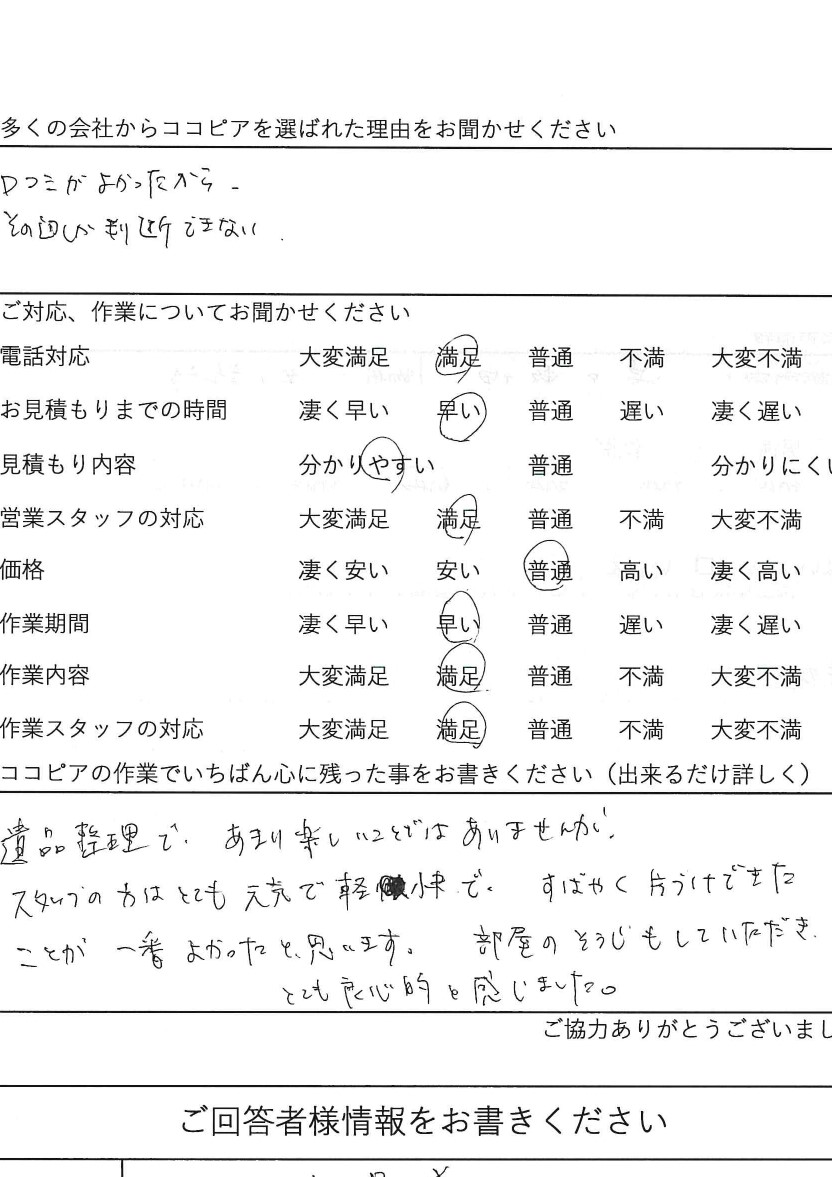 多くの会社からココピアを選ばれた理由をお聞かせください
口コミがよかったから。
その辺しか判断できない.
ご対応、作業についてお聞かせください
電話対応 大変満足 満足 普通 不満 大変不満
お見積もりまでの時間 凄く早い 早い 普通 遅い 凄く遅い
見積もり内容 分かりやすい 普通 分かりにくい
営業スタッフの対応 大変満足 満足 普通 不満 大変不満
価格 凄く安い 安い 普通 高い 凄く高い
作業期間 凄く早い 早い 普通 遅い 凄く遅い
作業内容 大変満足 満足 普通 不満 大変不満
作業スタッフの対応 大変満足 満足 普通 不満 大変不満
ココピアの作業でいちばん心に残った事をお書きください（出来るだけ詳しく）
遺品整理で、あまり楽しいことではありませんが、
スタッフの方はとても元気で軽快で。すばやく片うけできた
ことが一番よかったと、思います。部屋のそうじもしていただき、
とても良心的と感じました。
ご協力ありがとうございまし
ご回答者様情報をお書きください